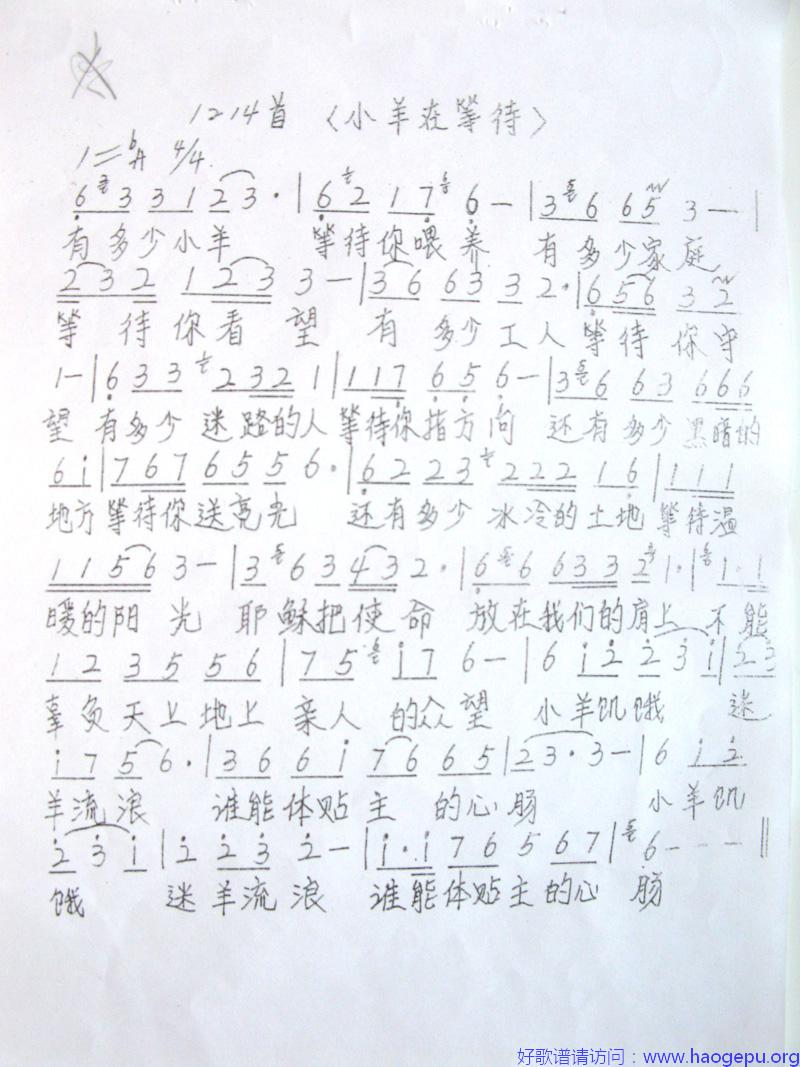 1214首 〈小羊在等待〉
1=♭A 4/4
6 3 3 1 2 3 · | 6 2 1 7 6 - | 3 6 6 5 3 - - |
有多少小羊 等待你喂养 有多少家庭
2 3 2 1 2 3 3 - | 3 6 6 3 3 2 · | 6 5 6 3 2
等待你看望 有多少工人等待你守
1 - | 6 3 3 2 3 2 1 | 1 1 7 6 5 6 - | 3 6 6 3 6 6 6
望 有多少迷路的人等待你指方向 还有多少黑暗的
6 i | 7 6 7 6 5 5 6 · | 6 2 2 3 2 2 2 1 6 | 1 1 1
地方等待你送亮光 还有多少冰冷的土地等待温
1 1 5 6 3 - | 3 6 3 4 3 2 · | 6 6 6 3 3 2 1 · | 1 · 1
暖的阳光 耶稣把使命 放在我们的肩上 不能
1 2 3 5 5 6 | 7 5 i 7 6 - | 6 i 2 2 3 i | 2 3
辜负天上地上亲人的众望 小羊饥饿 迷
i 7 5 6 · | 3 6 6 i 7 6 6 5 | 2 3 · 3 - | 6 i 2
羊流浪 谁能体贴主的心肠 小羊饥
2 3 i | 2 2 3 2 - | i · i 7 6 5 6 7 | 6 - - - ‖
饿 迷羊流浪 谁能体贴主的心肠
好歌谱请访问：www.haogepu.org